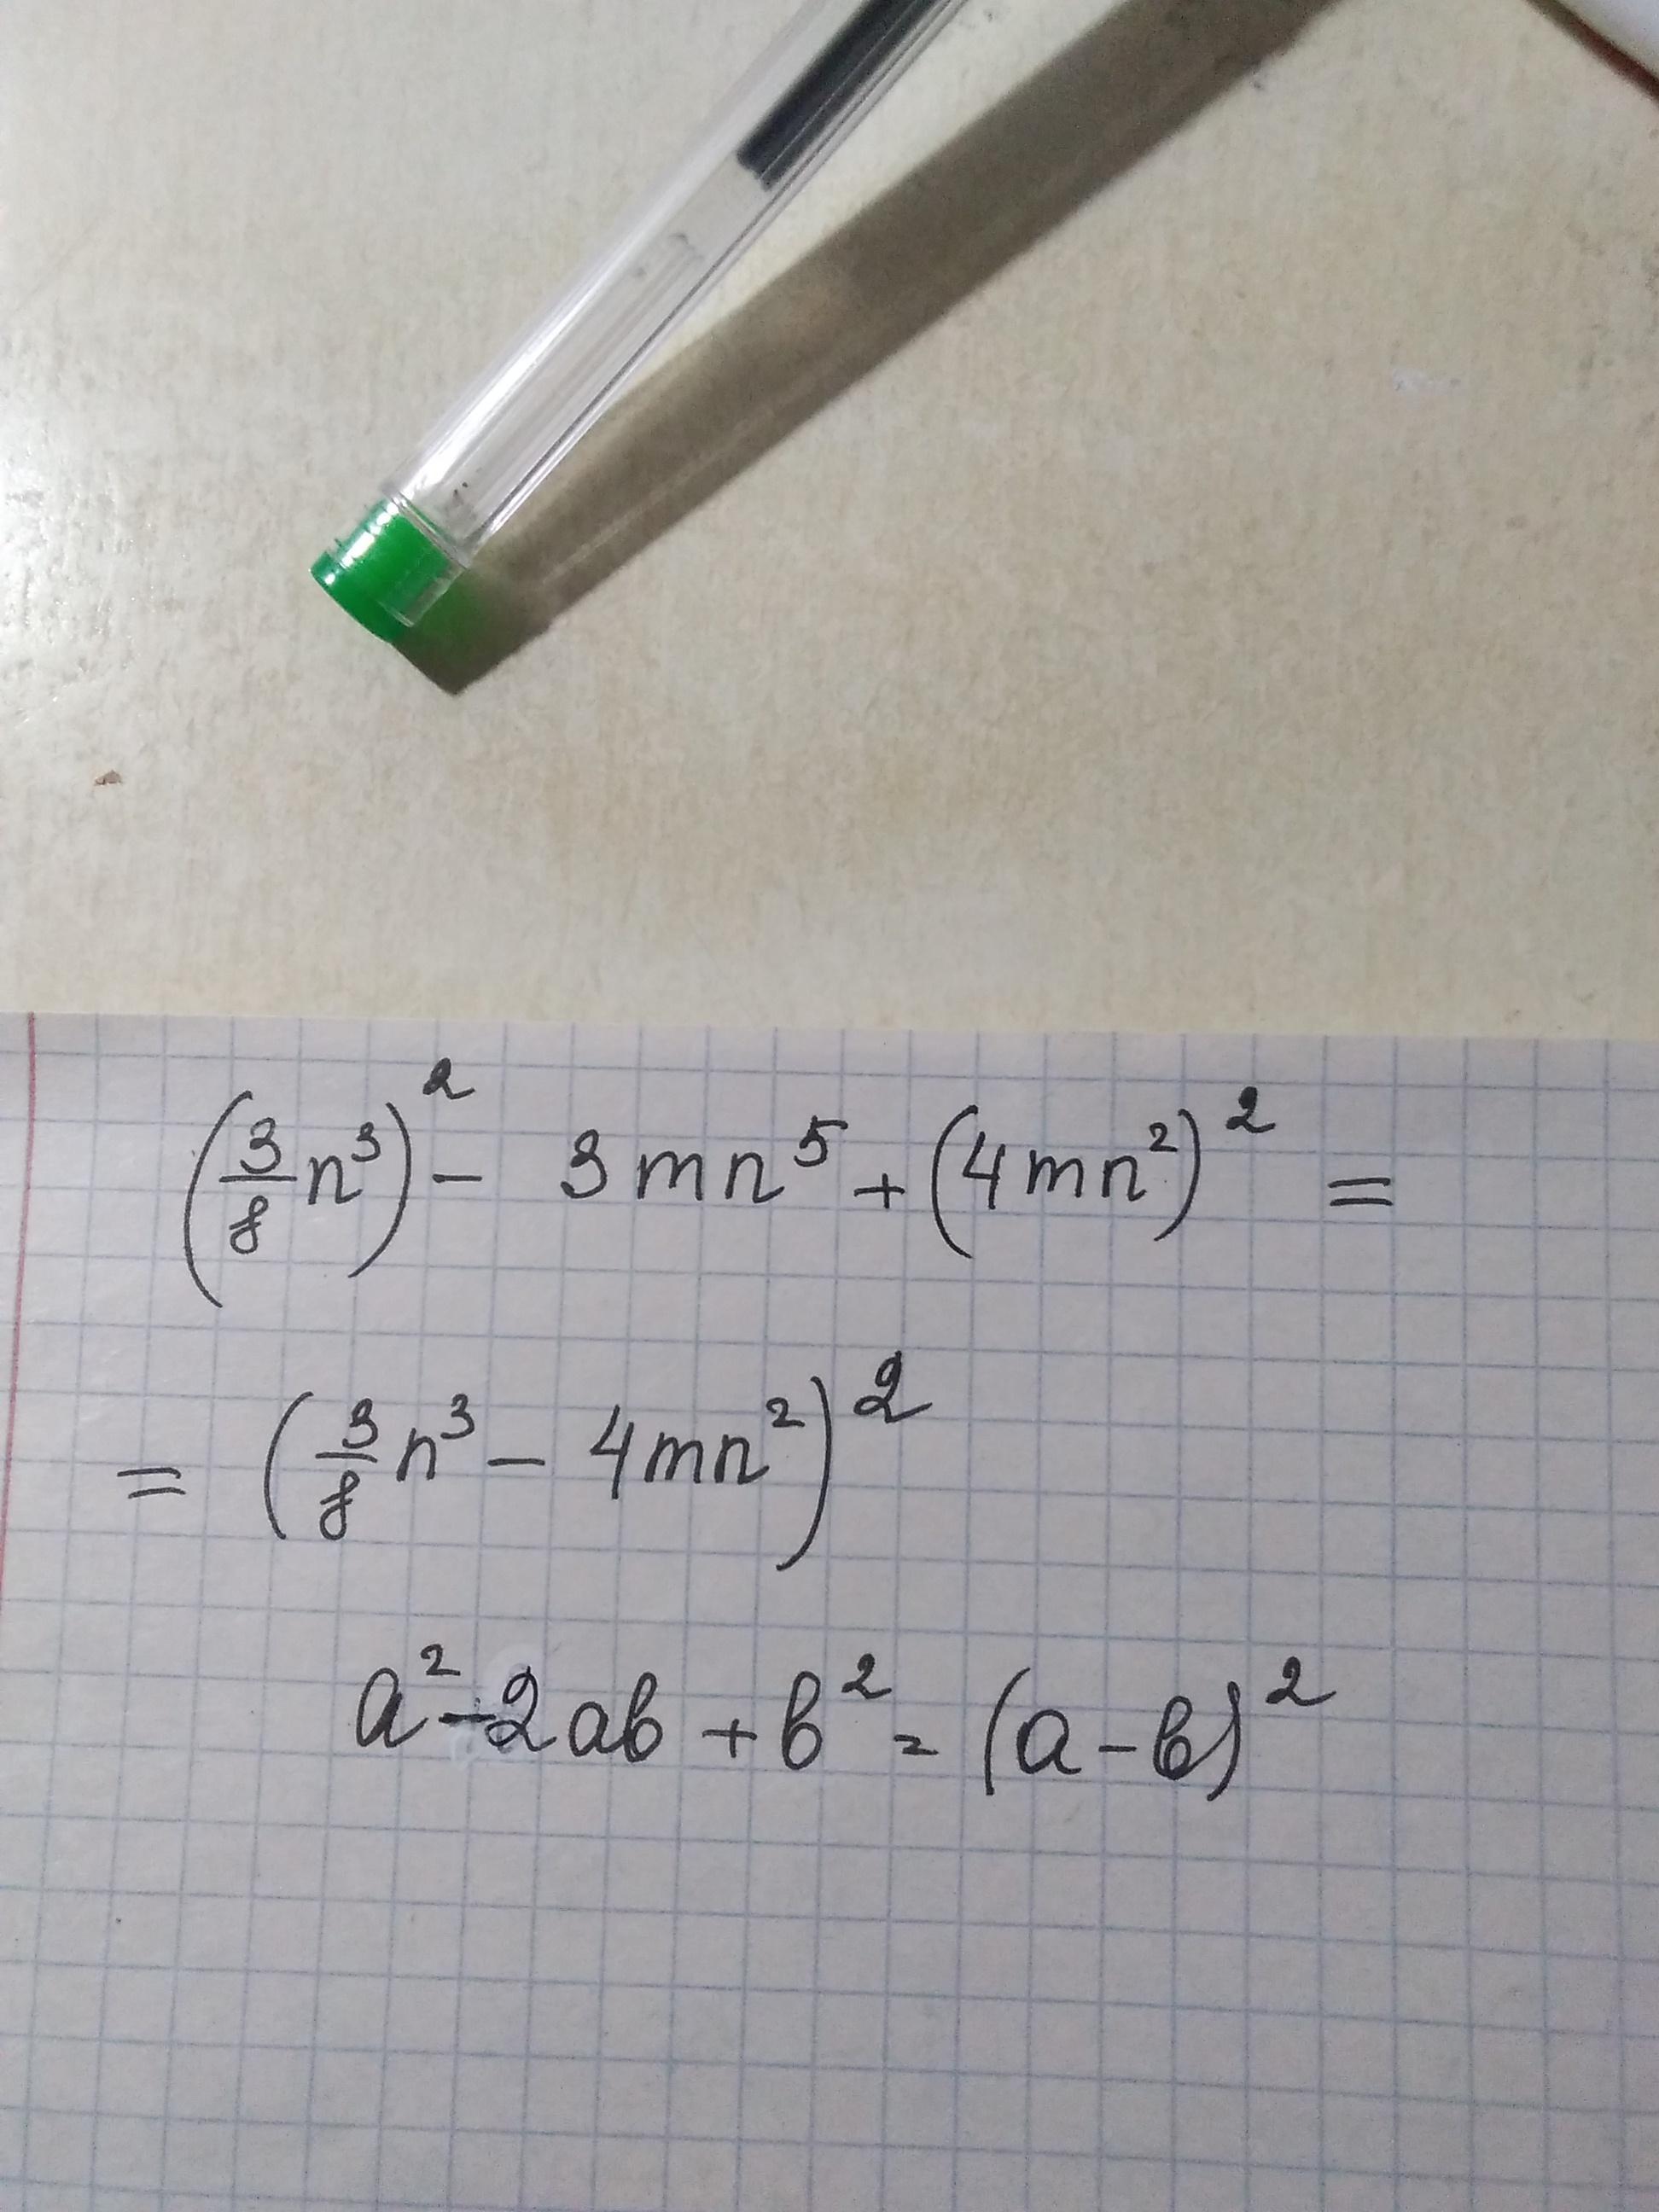 (3/8 n³)² - 3mn⁵ + (4mn²)² =
= (3/8 n³ - 4mn²)²
a² - 2ab + b² = (a - b)²